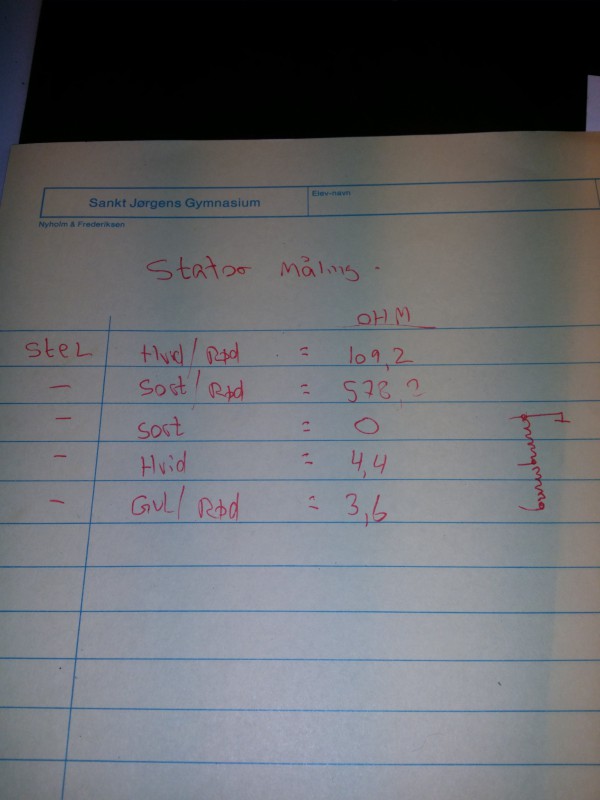 Sankt Jørgens Gymnasium
Elev-navn
Nyholm & Frederiksen
Stator måling.
OHM
Stel Hvid/Rød = 109,2
— Sort/Rød =
— Sort = 0
— Hvid = 4,4
— Gul/Rød = 3,6